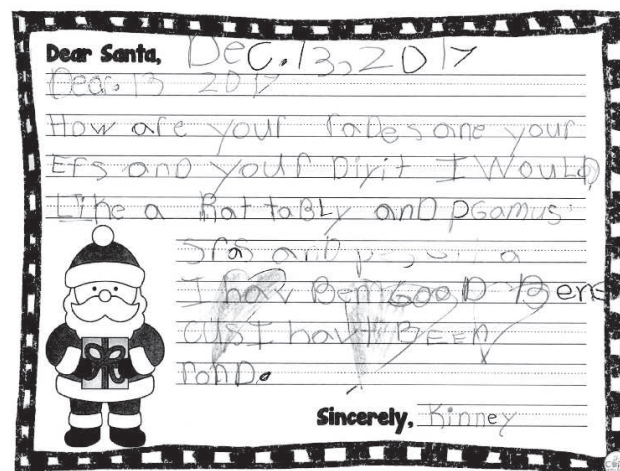 Dear Santa, Dec. 13, 2017
Dear. 13 2017
How are your rades ane your
Efs and your Divit I Would
Like a Rat taBLy anD PGamus
sras and a
I hav Ben GooD Bens
cus I havt BEEn
ronD.
Sincerely, Kinney